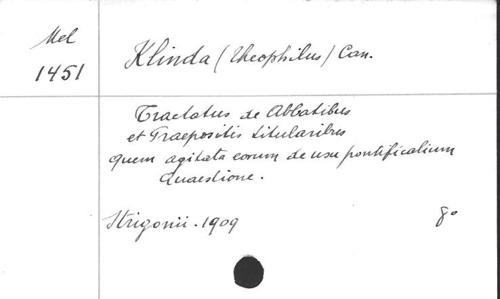 Mel
1451
Klinda (Theophilus) Can.
Tractatus de Abbatibus
et Praepositis titularibus
quem agitata eorum de usu pontificalium
Quaestione.
Strigonii. 1909
8°